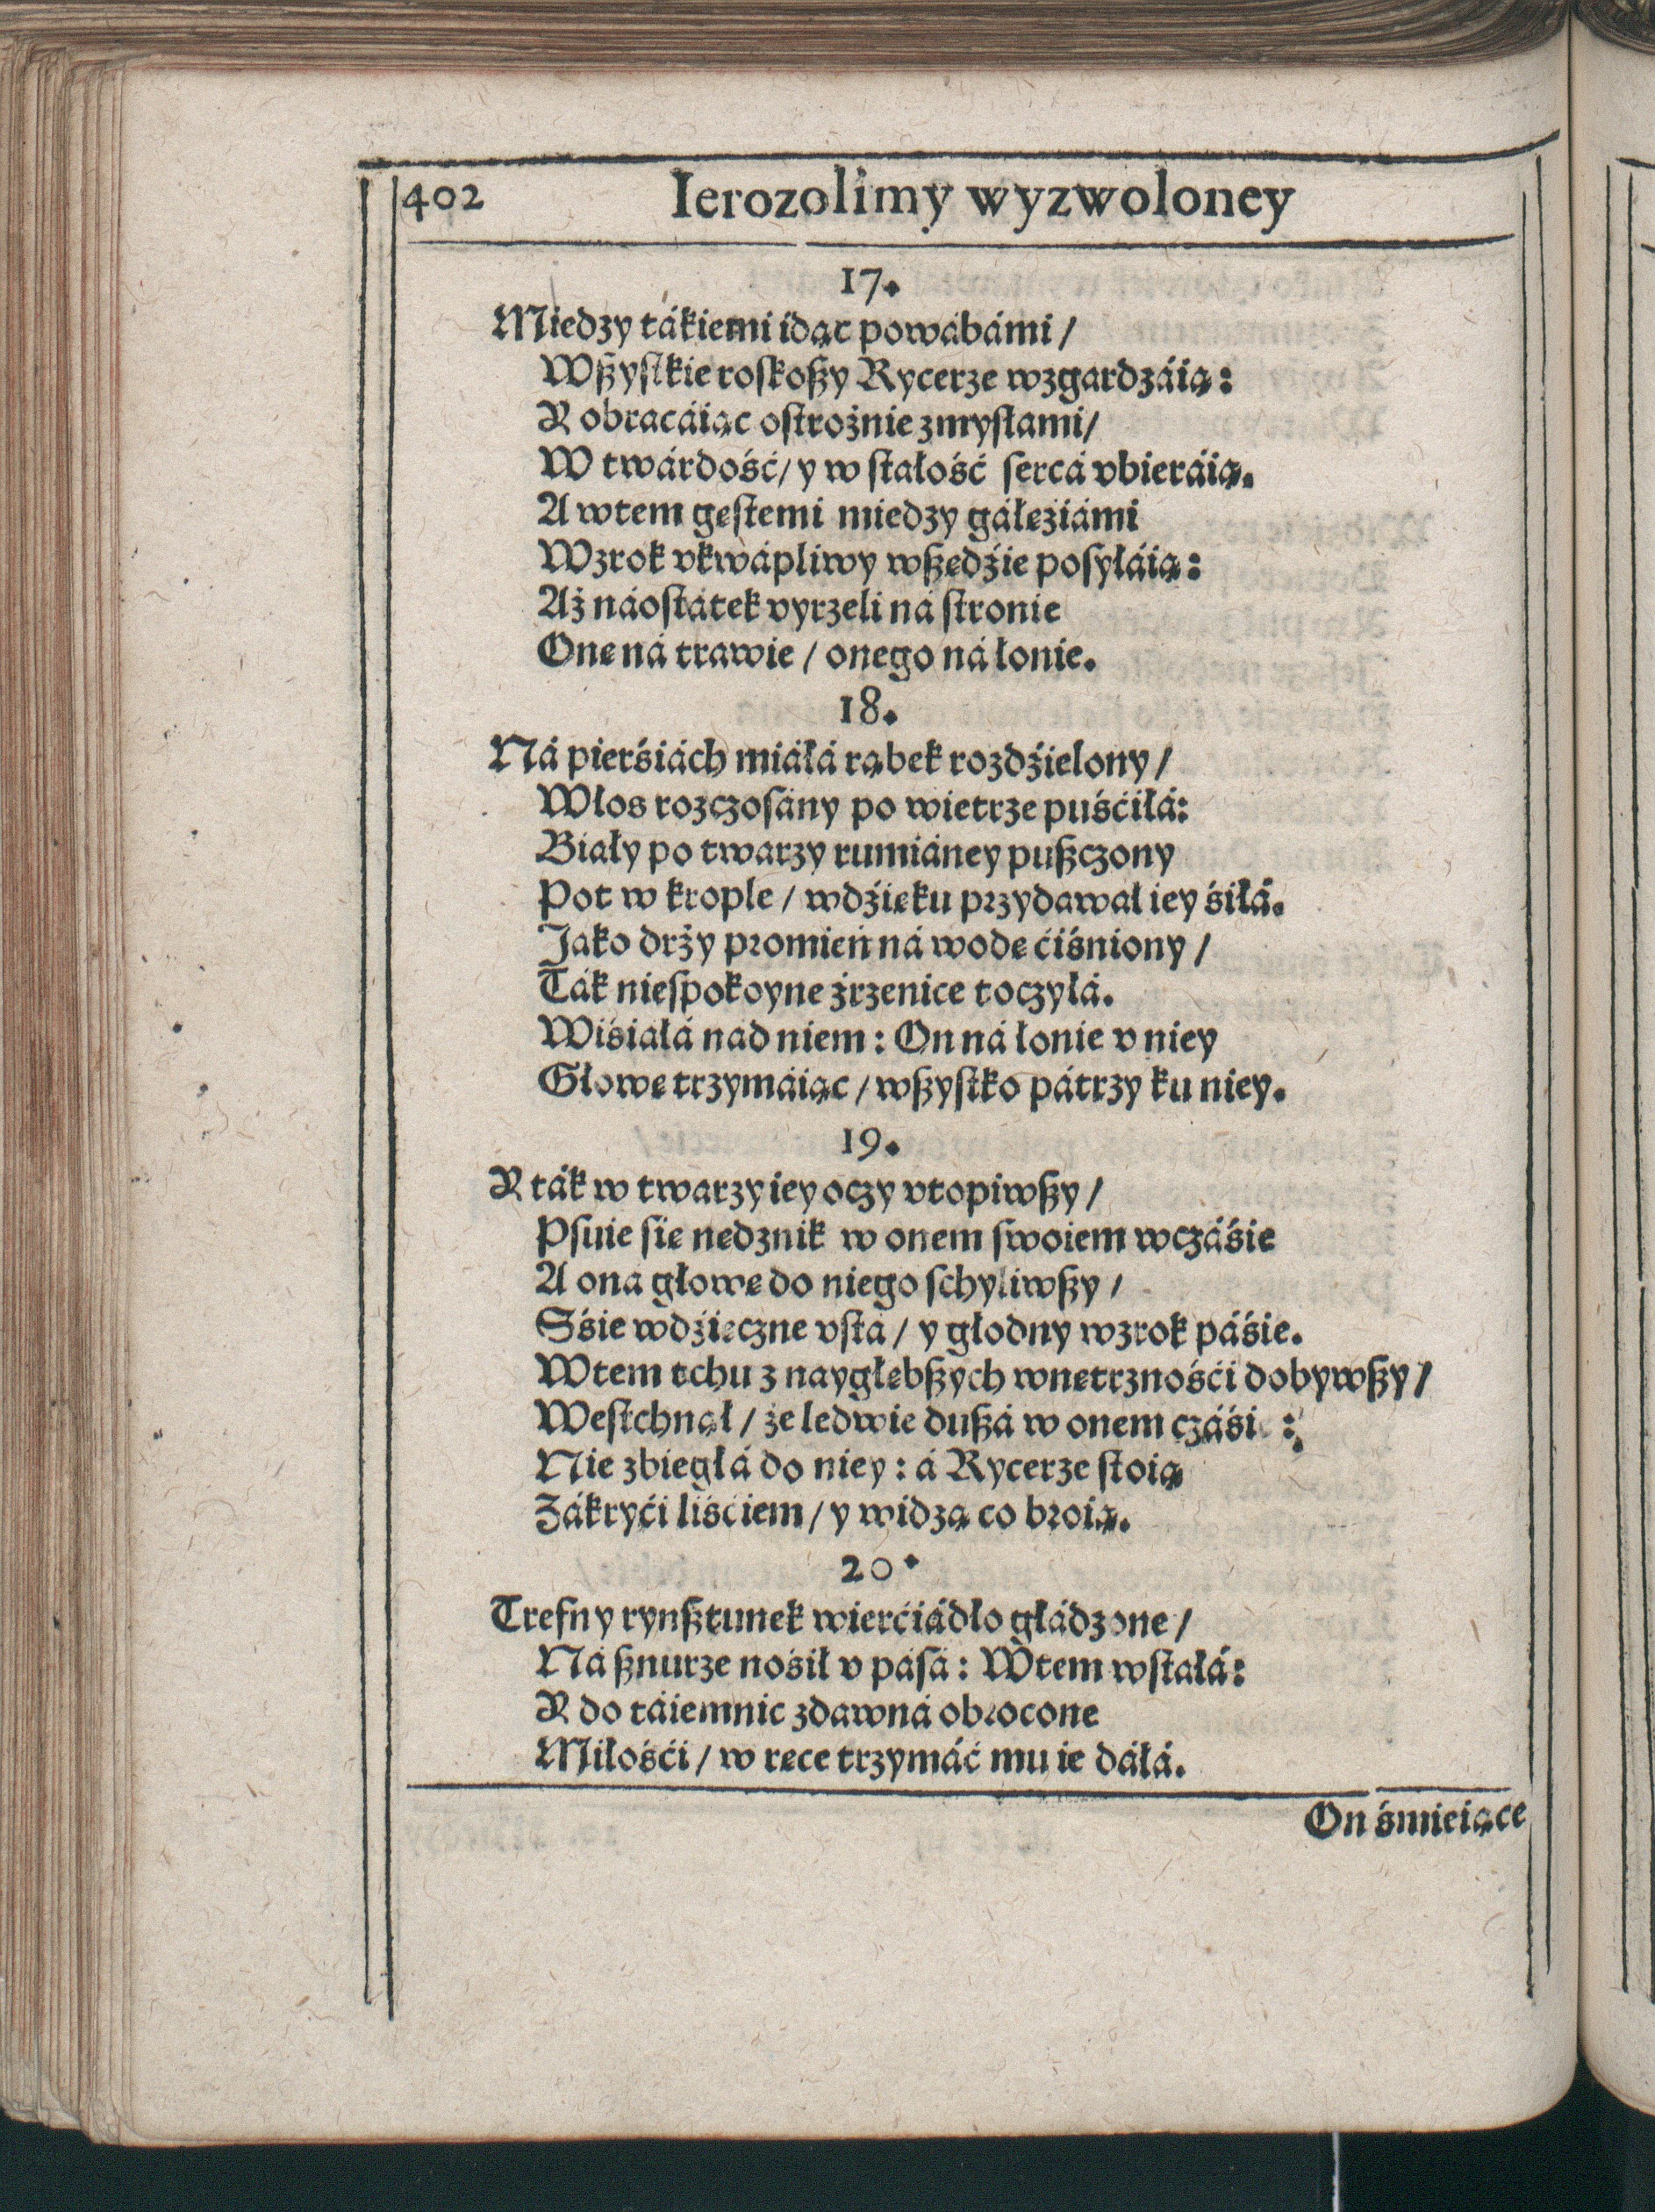 402 Ierozolimy wyzwoloney
17.
Miedzy tákiemi idąc powabámi /
Wßyſtkie roſkoßy Rycerze wzgardzáią:
Y obracáiąc oſtrożnie zmyſłami/
W twárdość/ y w ſtałość ſercá vbieráią.
A wtem gęſtemi miedzy gáłęźiámi
Wzrok vkwápliwy wßędźie poſyłáią:
Aż náoſtátek vyrzeli ná ſtronie
Onę ná trawie / onego ná łonie.
18.
Ná pierśiách miáłá rąbek rozdźielony /
Włos rozczoſány po wietrze puśćiłá:
Biały po twarzy rumiáney pußczony
Pot w krople / wdźięku przydawał iey śiłá.
Jako drży promień ná wodę ćiśniony /
Ták nieſpokoyne źrzenice toczyłá.
Wiśiałá nád niem : On ná łonie v niey
Głowę trzymáiąc / wßyſtko pátrzy ku niey.
19.
Y ták w twarzy iey oczy vtopiwßy /
Pſuie ſię nędznik w onem ſwoiem wczáśie
A ona głowę do niego ſchyliwßy /
Sśie wdźięczne vſtá / y głodny wzrok páśie.
Wtem tchu z naygłębßych wnętrznośći dobywßy /
Weſtchnął / że ledwie dußá w onem czáśie :
Nie zbiegłá do niey : á Rycerze ſtoią
Zákryći liśćiem / y widzą co broią.
20.
Trefny rynßtunek wierćiádło głádzone /
Ná ßnurze nośił v páſá : Wtem wſtałá:
Y do táiemnic zdawná obrocone
Miłośći / w ręce trzymáć mu ie dáłá.
On śmieiące